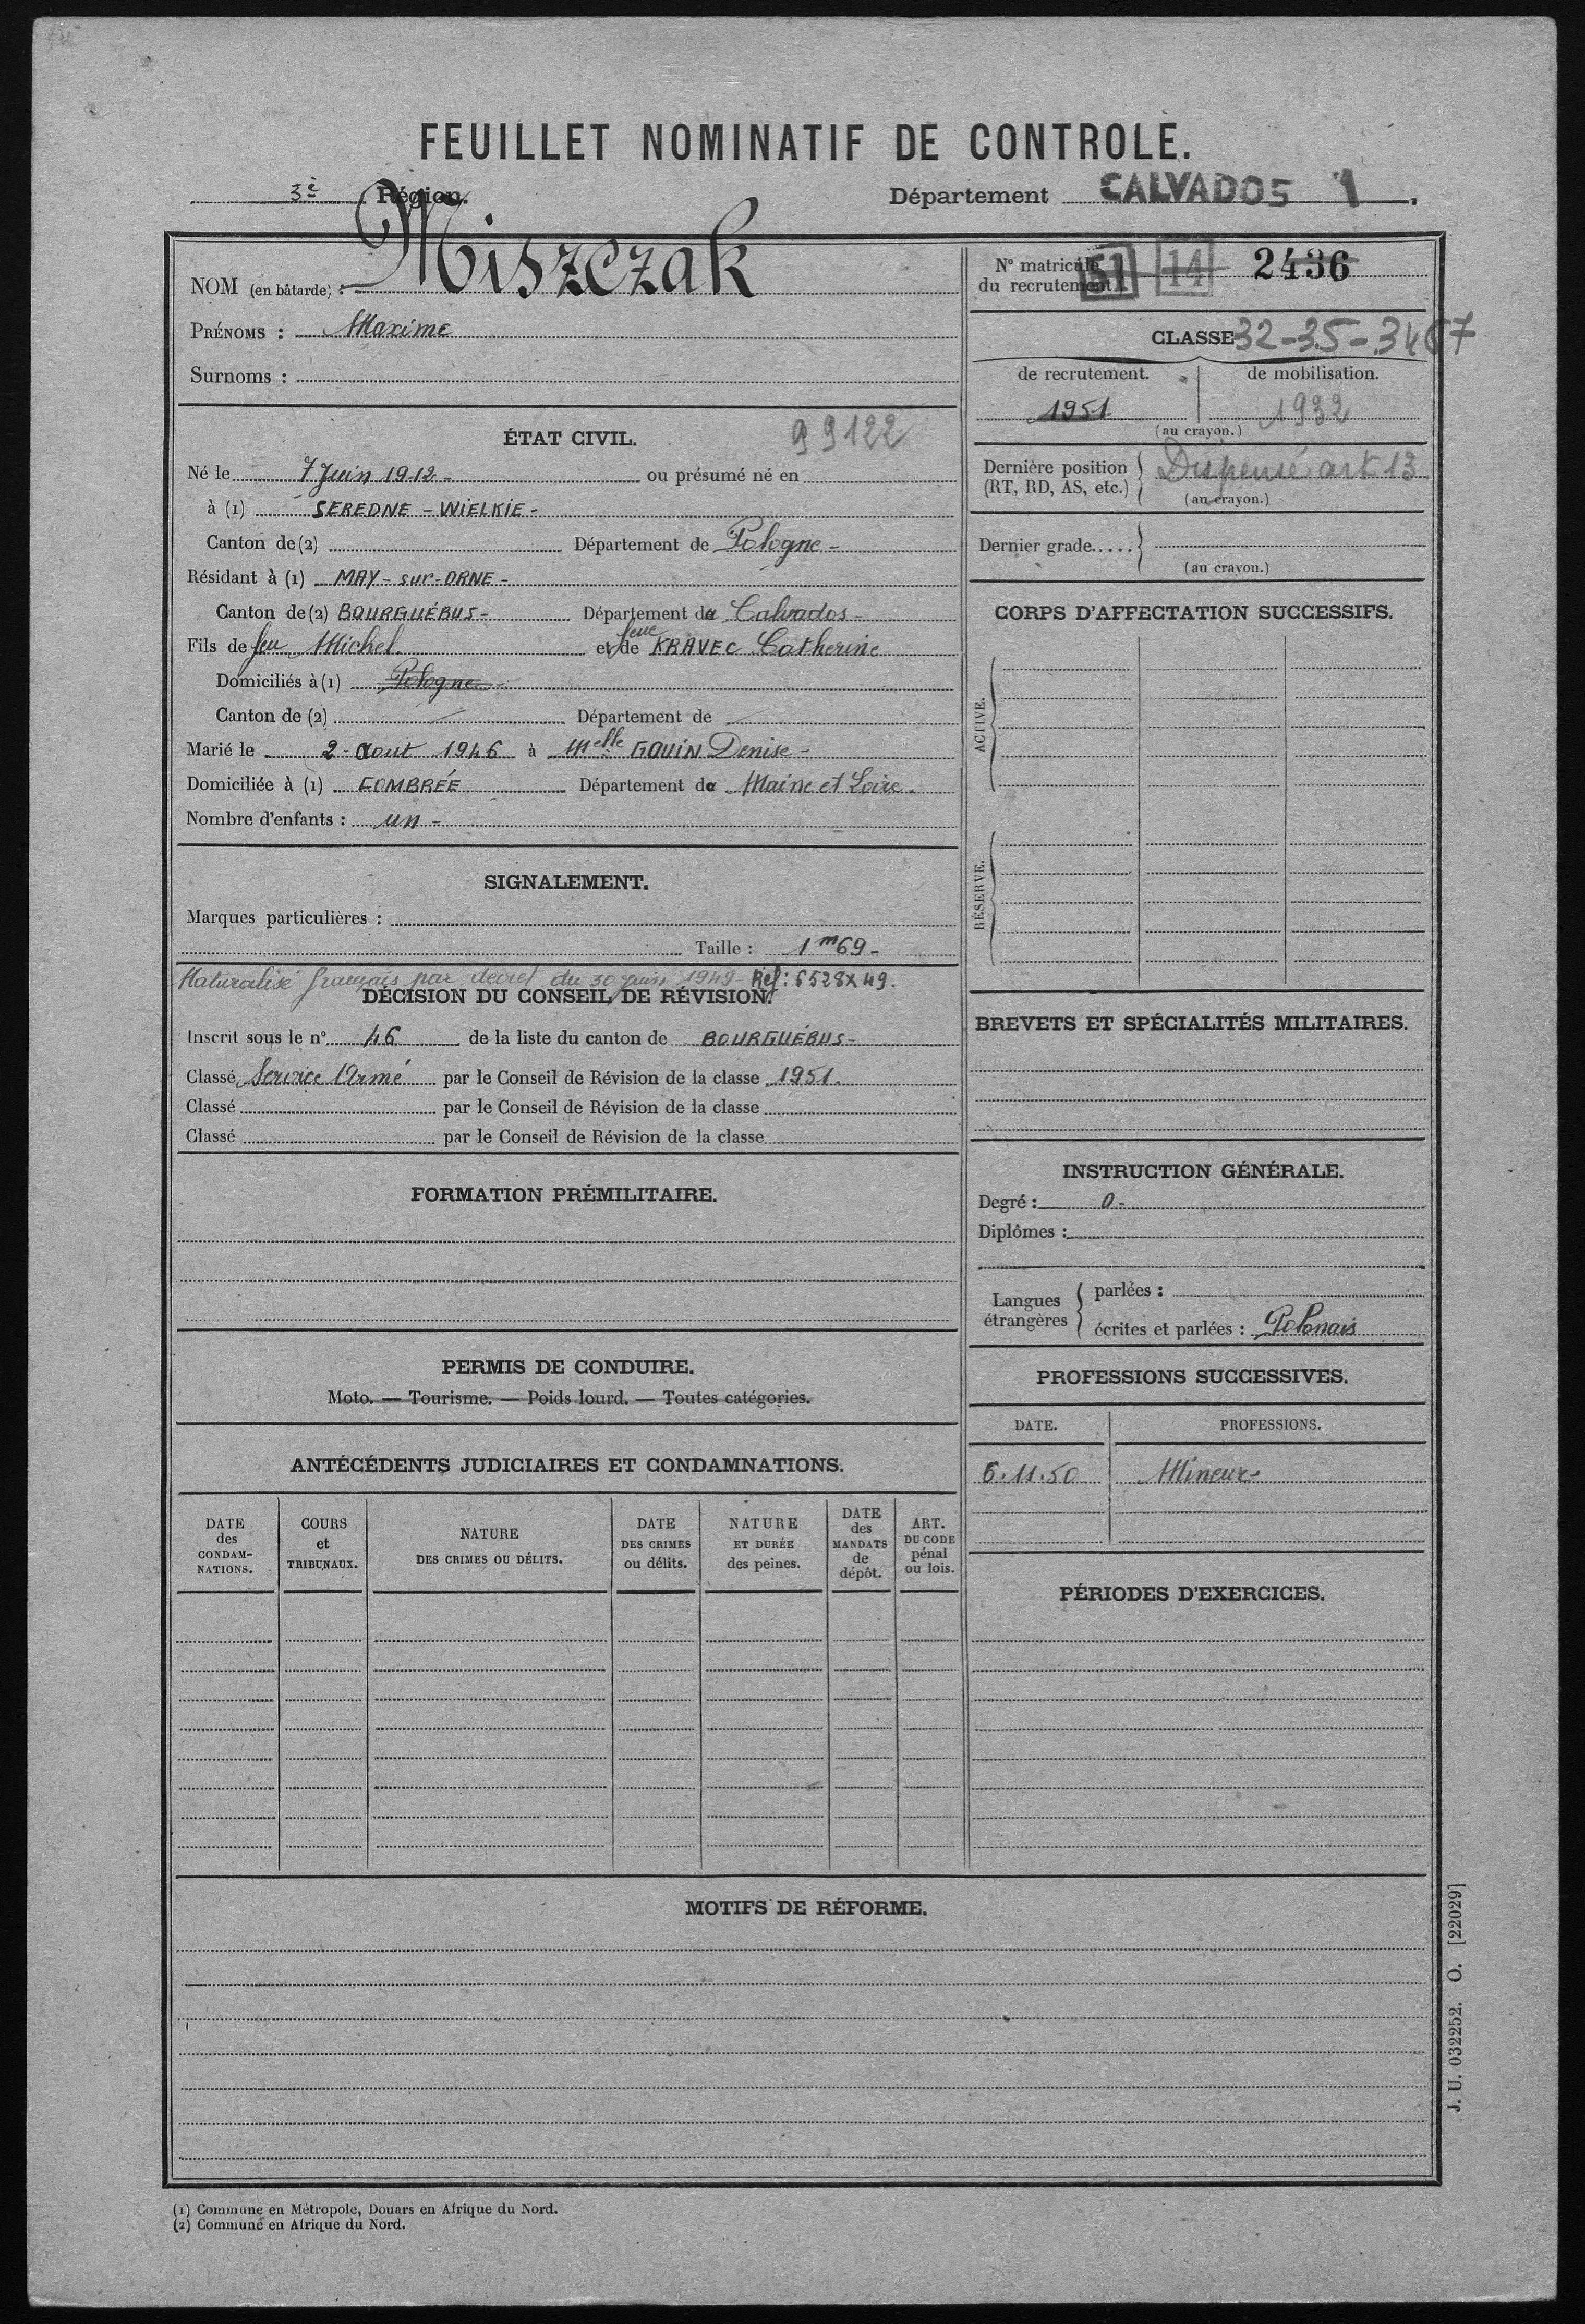 FEUILLET NOMINATIF DE CONTROLE.
3è Région.
Département CALVADOS 1.
NOM (en bâtarde) : Miszczak
PRÉNOMS : Maxime
Surnoms :
ÉTAT CIVIL. 99122
Né le 7 Juin 1912 - ou présumé né en
à (1) SEREDNE - WIELKIE -
Canton de (2) Département de Pologne -
Résidant à (1) MAY - sur - ORNE -
Canton de (2) BOURGUÉBUS - Département du Calvados -
Fils de feu Michel. et de feue KRAVEC Catherine
Domiciliés à (1) Pologne
Canton de (2) Département de
Marié le 2 - Aout 1946 à Melle GOUIN Denise -
Domiciliée à (1) COMBRÉE Département de Maine et Loire.
Nombre d'enfants : un -
SIGNALEMENT.
Marques particulières :
Taille : 1m69 -
Naturalisé français par décret du 30 juin 1949 Réf : 6528X49.
DÉCISION DU CONSEIL DE RÉVISION.
Inscrit sous le n° 46 de la liste du canton de BOURGUÉBUS -
Classé Service Armé par le Conseil de Révision de la classe 1951.
Classé par le Conseil de Révision de la classe
Classé par le Conseil de Révision de la classe
FORMATION PRÉMILITAIRE.
PERMIS DE CONDUIRE.
Moto. — Tourisme. — Poids lourd. — Toutes catégories.
ANTÉCÉDENTS JUDICIAIRES ET CONDAMNATIONS.
DATE des CONDAM-NATIONS.
COURS et TRIBUNAUX.
NATURE DES CRIMES OU DÉLITS.
DATE DES CRIMES ou délits.
NATURE ET DURÉE des peines.
DATE des MANDATS de dépôt.
ART. DU CODE pénal ou lois.
N° matricule du recrutement 51 14 2436
CLASSE 32-35-3467
de recrutement. de mobilisation.
1951 1932
(au crayon.)
Dernière position (RT, RD, AS, etc.) Dispensé art 13
(au crayon.)
Dernier grade.....
(au crayon.)
CORPS D'AFFECTATION SUCCESSIFS.
ACTIVE.
RÉSERVE.
BREVETS ET SPÉCIALITÉS MILITAIRES.
INSTRUCTION GÉNÉRALE.
Degré : 0 -
Diplômes :
Langues étrangères
parlées :
écrites et parlées : Polonais
PROFESSIONS SUCCESSIVES.
DATE. PROFESSIONS.
6.11.50 Mineur -
PÉRIODES D'EXERCICES.
MOTIFS DE RÉFORME.
J. U. 032252. O. [22029]
(1) Commune en Métropole, Douars en Afrique du Nord.
(2) Commune en Afrique du Nord.